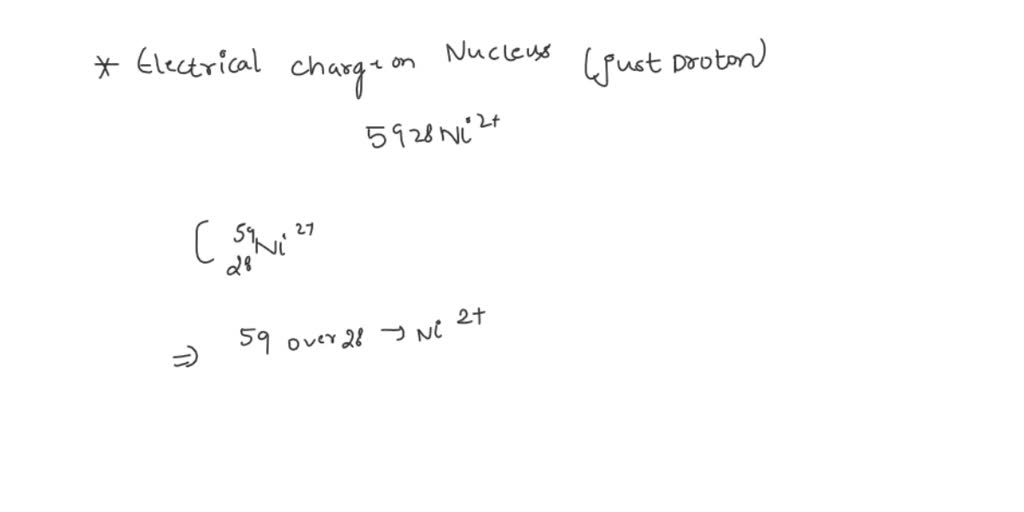 * Electrical charge on Nucleus (just proton)
5928Ni²⁺
[ ⁵⁹₂₈Ni²⁺
⇒ 59 over 28 → Ni²⁺